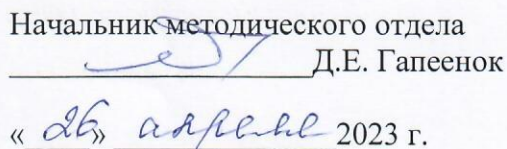 Начальник методического отдела
Д.Е. Гапеенок
« 26 » апреля 2023 г.